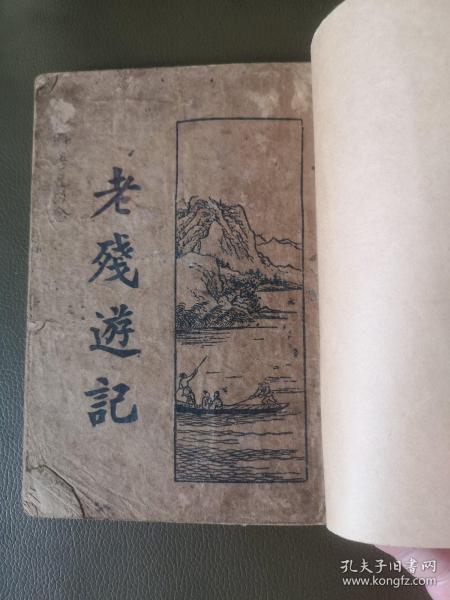 老殘遊記
孔夫子旧书网
www.kongfz.com